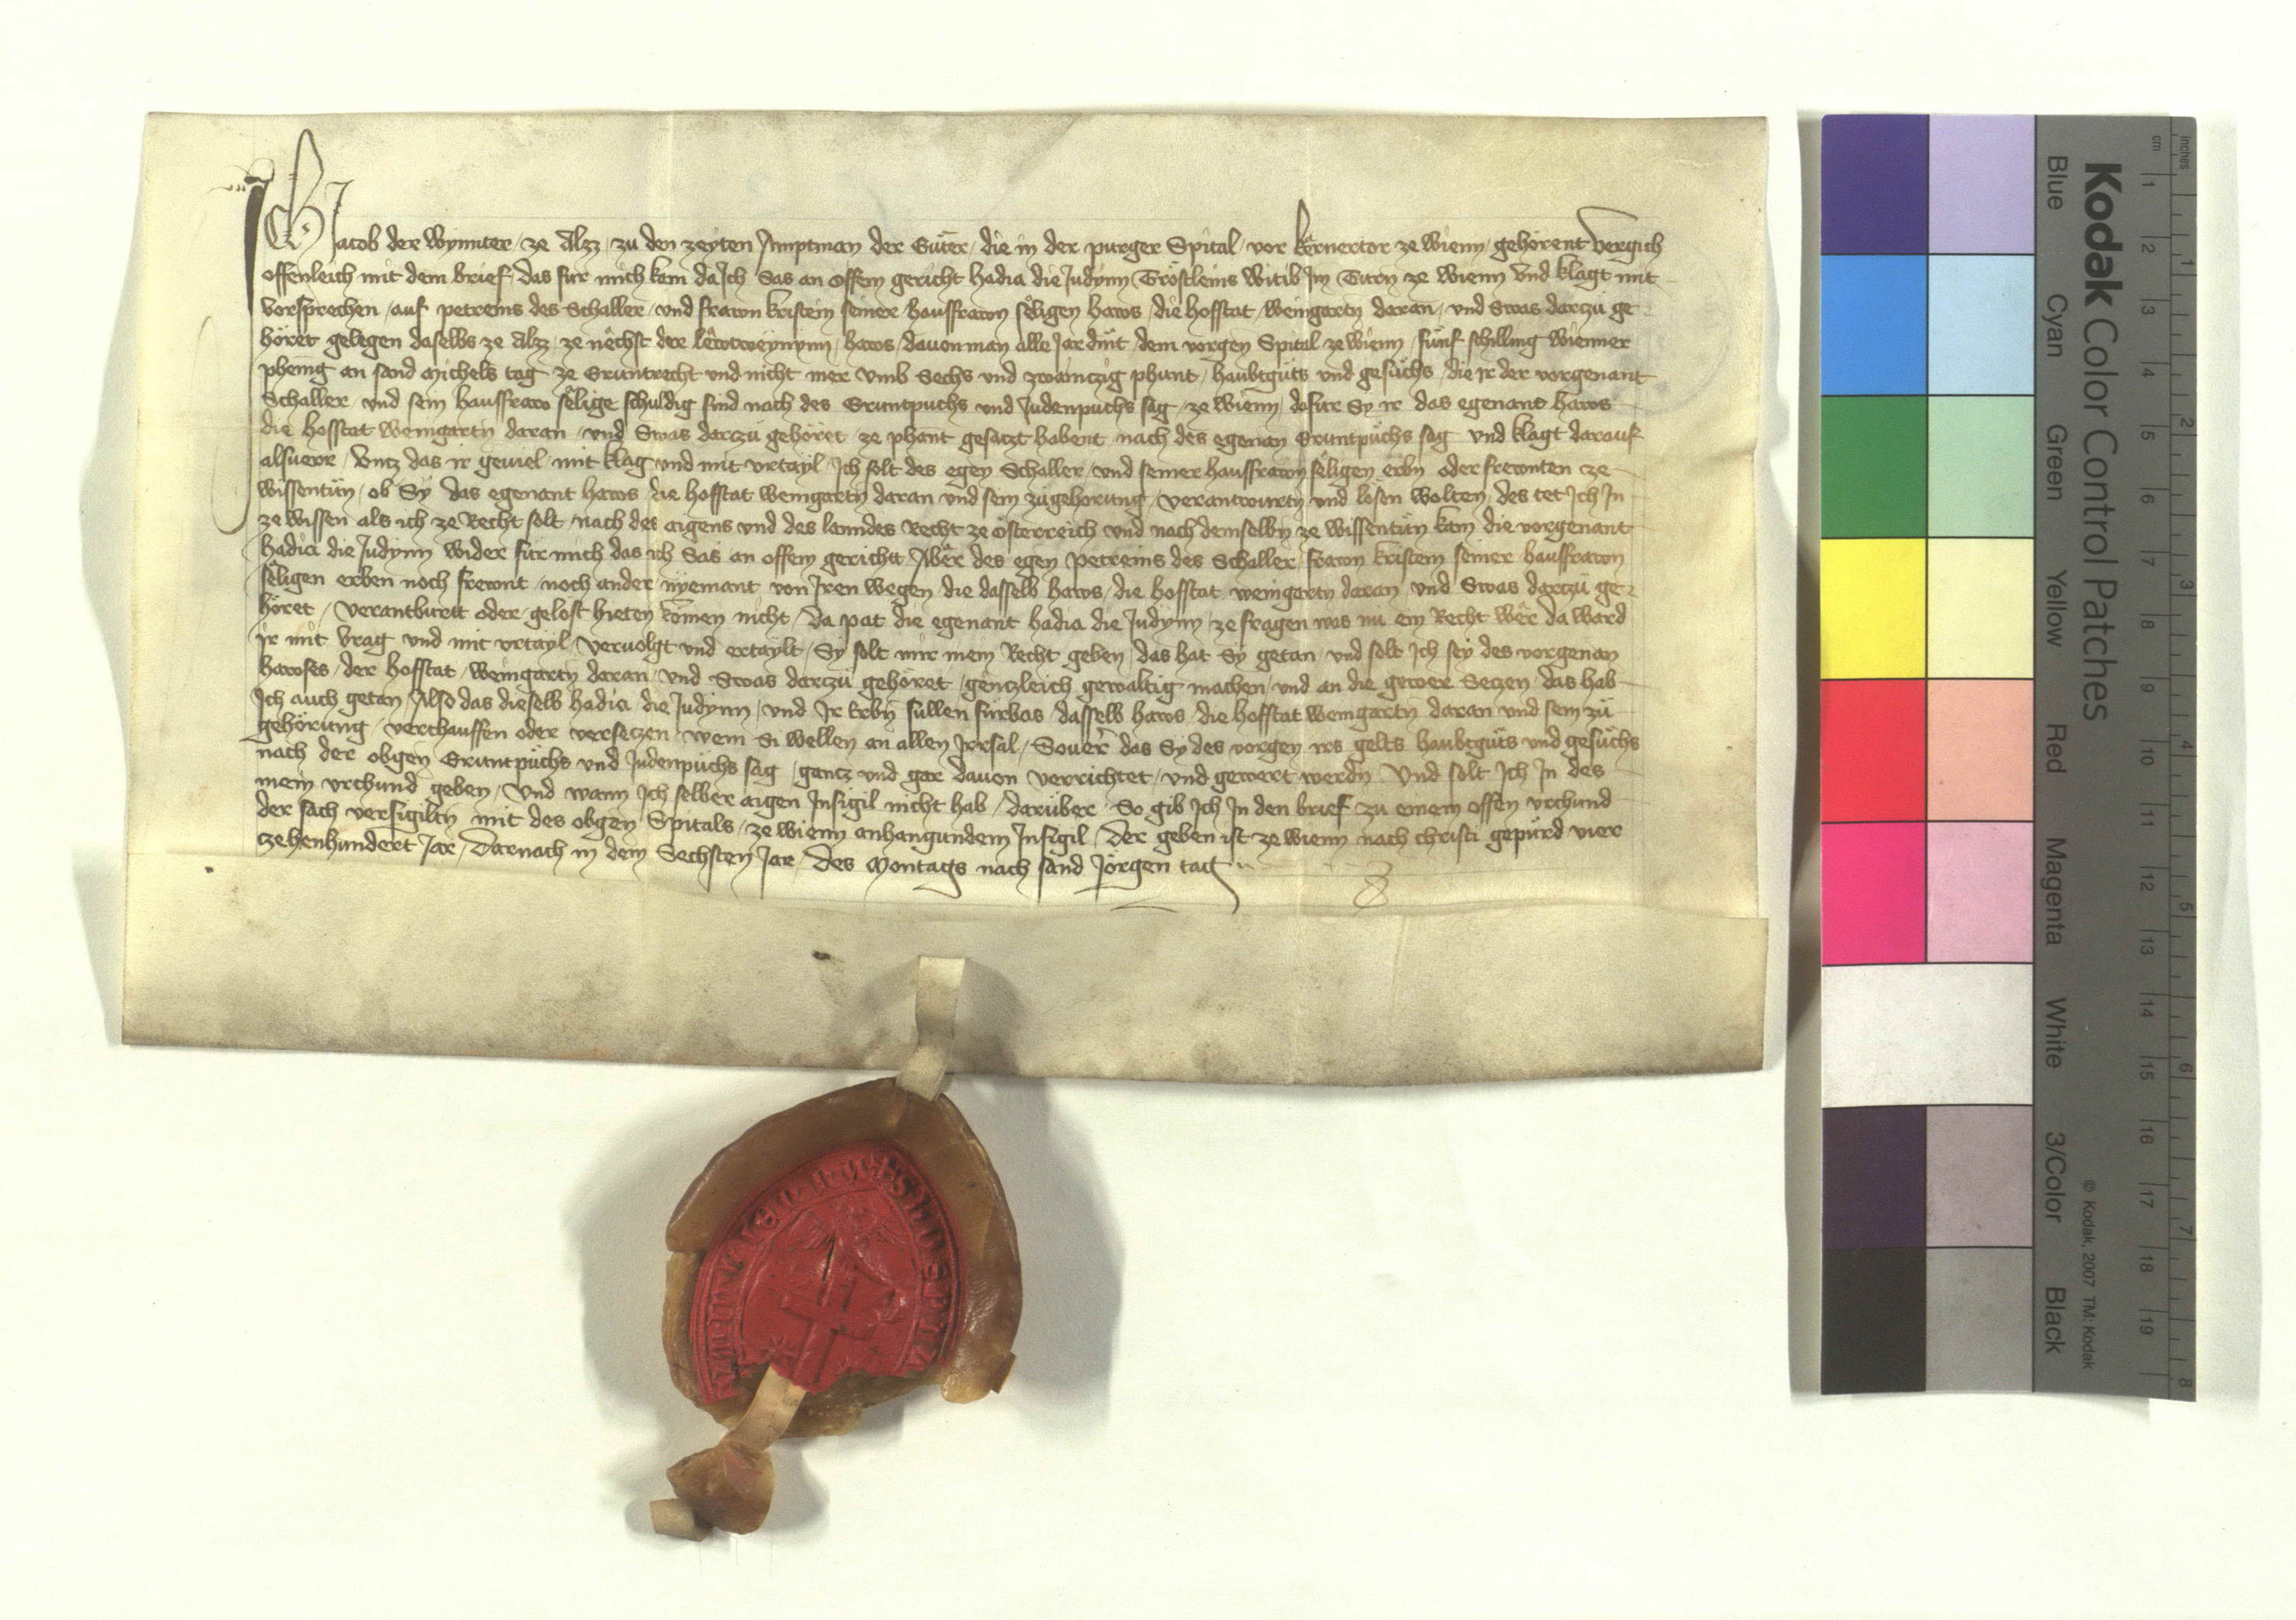 Ich Jacob der Wynnter ze Alzz zu den zeyten Amptman der Guͤter die in der purger Spital vor kernertor ze wienn gehoͤrent Vergich
offenleich mit dem brief das fur mich kam da Ich Sas an offem gericht hadia die Judynn Troͤstleins Witib Im Turn ze wienn Vnd klagt mit
vorsprechen auf petreins des Schaller vnd frawn kristein seiner hausfrawn seligen haws die hofstat weingartn daran vnd Swas darzu ge
hoͤret gelegen daselbs ze Alzz ze nechst der haws dauon man alle Jar dint dem vorgen Spital ze wienn fuͤnf schilling wienner
phenig an sand Michels tag ze Gruntrecht vnd nicht mer Vmb Sechs vnd zwainczig phunt haubtguts vnd gesuͤchs die ir der vorgenant
Schaller vnd sein hausfraw selige schuldig sind nach des Gruntpuchs vnd Judenpuchs sag ze wienn dafur Sy ir das egenant haws
die hofstat weingartn daran vnd Swas darczu gehoͤret ze phant gesaczt habent nach des egenan Gruntpuͤchs sag vnd klagt darauf
alsuerr Vntz das ir geuiel mit klag vnd mit vrtayl Ich solt des egen Schaller vnd seiner hausfrawn seligen erbn oder frewnten ze
wissentuͤn ob Sy das egenant haws die hofstat weingartn daran vnd sein zugehorung verantwurtn vnd loͤsen wolten des tet Ich In
ze wissen als ich ze Recht solt nach des aigens vnd des lanndes Recht ze oͤsterreich vnd nach demselbn ze wissentuͤn kam die vorgenant
hadia die Judynn wider fuͤr mich das ich Sas an offem gerichtt Aber des egen petreins des Schaller frawn kristein seiner hausfrawn
seligen erben noch frewnt noch ander nyemant von Iren wegen die dasselb haws die hofstat weingartn daran vnd Swas darczu ge
hoͤret verantburtt oder gelost hieten koͤmen nicht Da pat die egenant hadia die Judynn ze fragen was nu ein Recht wer da ward
ir mit vrag vnd mit vrtayl veruolgt vnd ertaylt Sy solt mir mein Recht geben das hat Sy getan vnd solt Ich sey des vorgenan
hawses der hofstat weingartn daran vnd Swas darczu gehoret genczleich gewaltig machen vnd an die gewer Seczen das hab
Ich auch getan Also das dieselb hadia die Judynn vnd Ir Erbn sullen fuͤrbas dasselb haws die hofstat weingartn daran vnd sein zu
gehoͤrung verchauffen oder verseczen wem Si wellen an allen Irrsal Souer das Sy des vorgen irs gelts haubtguͤts vnd gesuͤchs
nach der obgen Gruntpuͤchs vnd Judenpuͤchs sag gancz vnd gar dauon verrichtet vnd gewert werdn Vnd solt Ich In des
mein vrchund geben Vnd wann Ich selber aigen Insigil nicht hab daruͤber So gib Ich In den brief zu einem offen vrchund
der sach versigiltn mit des obgen Spitals ze wienn anhangundem Insigil Der geben ist ze wienn nach christi gepuͤrd vier
czehenhundert Jar Darnach in dem Sechsten Jar Des Montags nach sand Joͤrgen tag
Kodak Color Control Patches
© Kodak, 2007 TM: Kodak
Blue Cyan Green Yellow Red Magenta White 3/Color Black
cm 1 2 3 4 5 6 7 8 9 10 11 12 13 14 15 16 17 18 19
inches 1 2 3 4 5 6 7 8